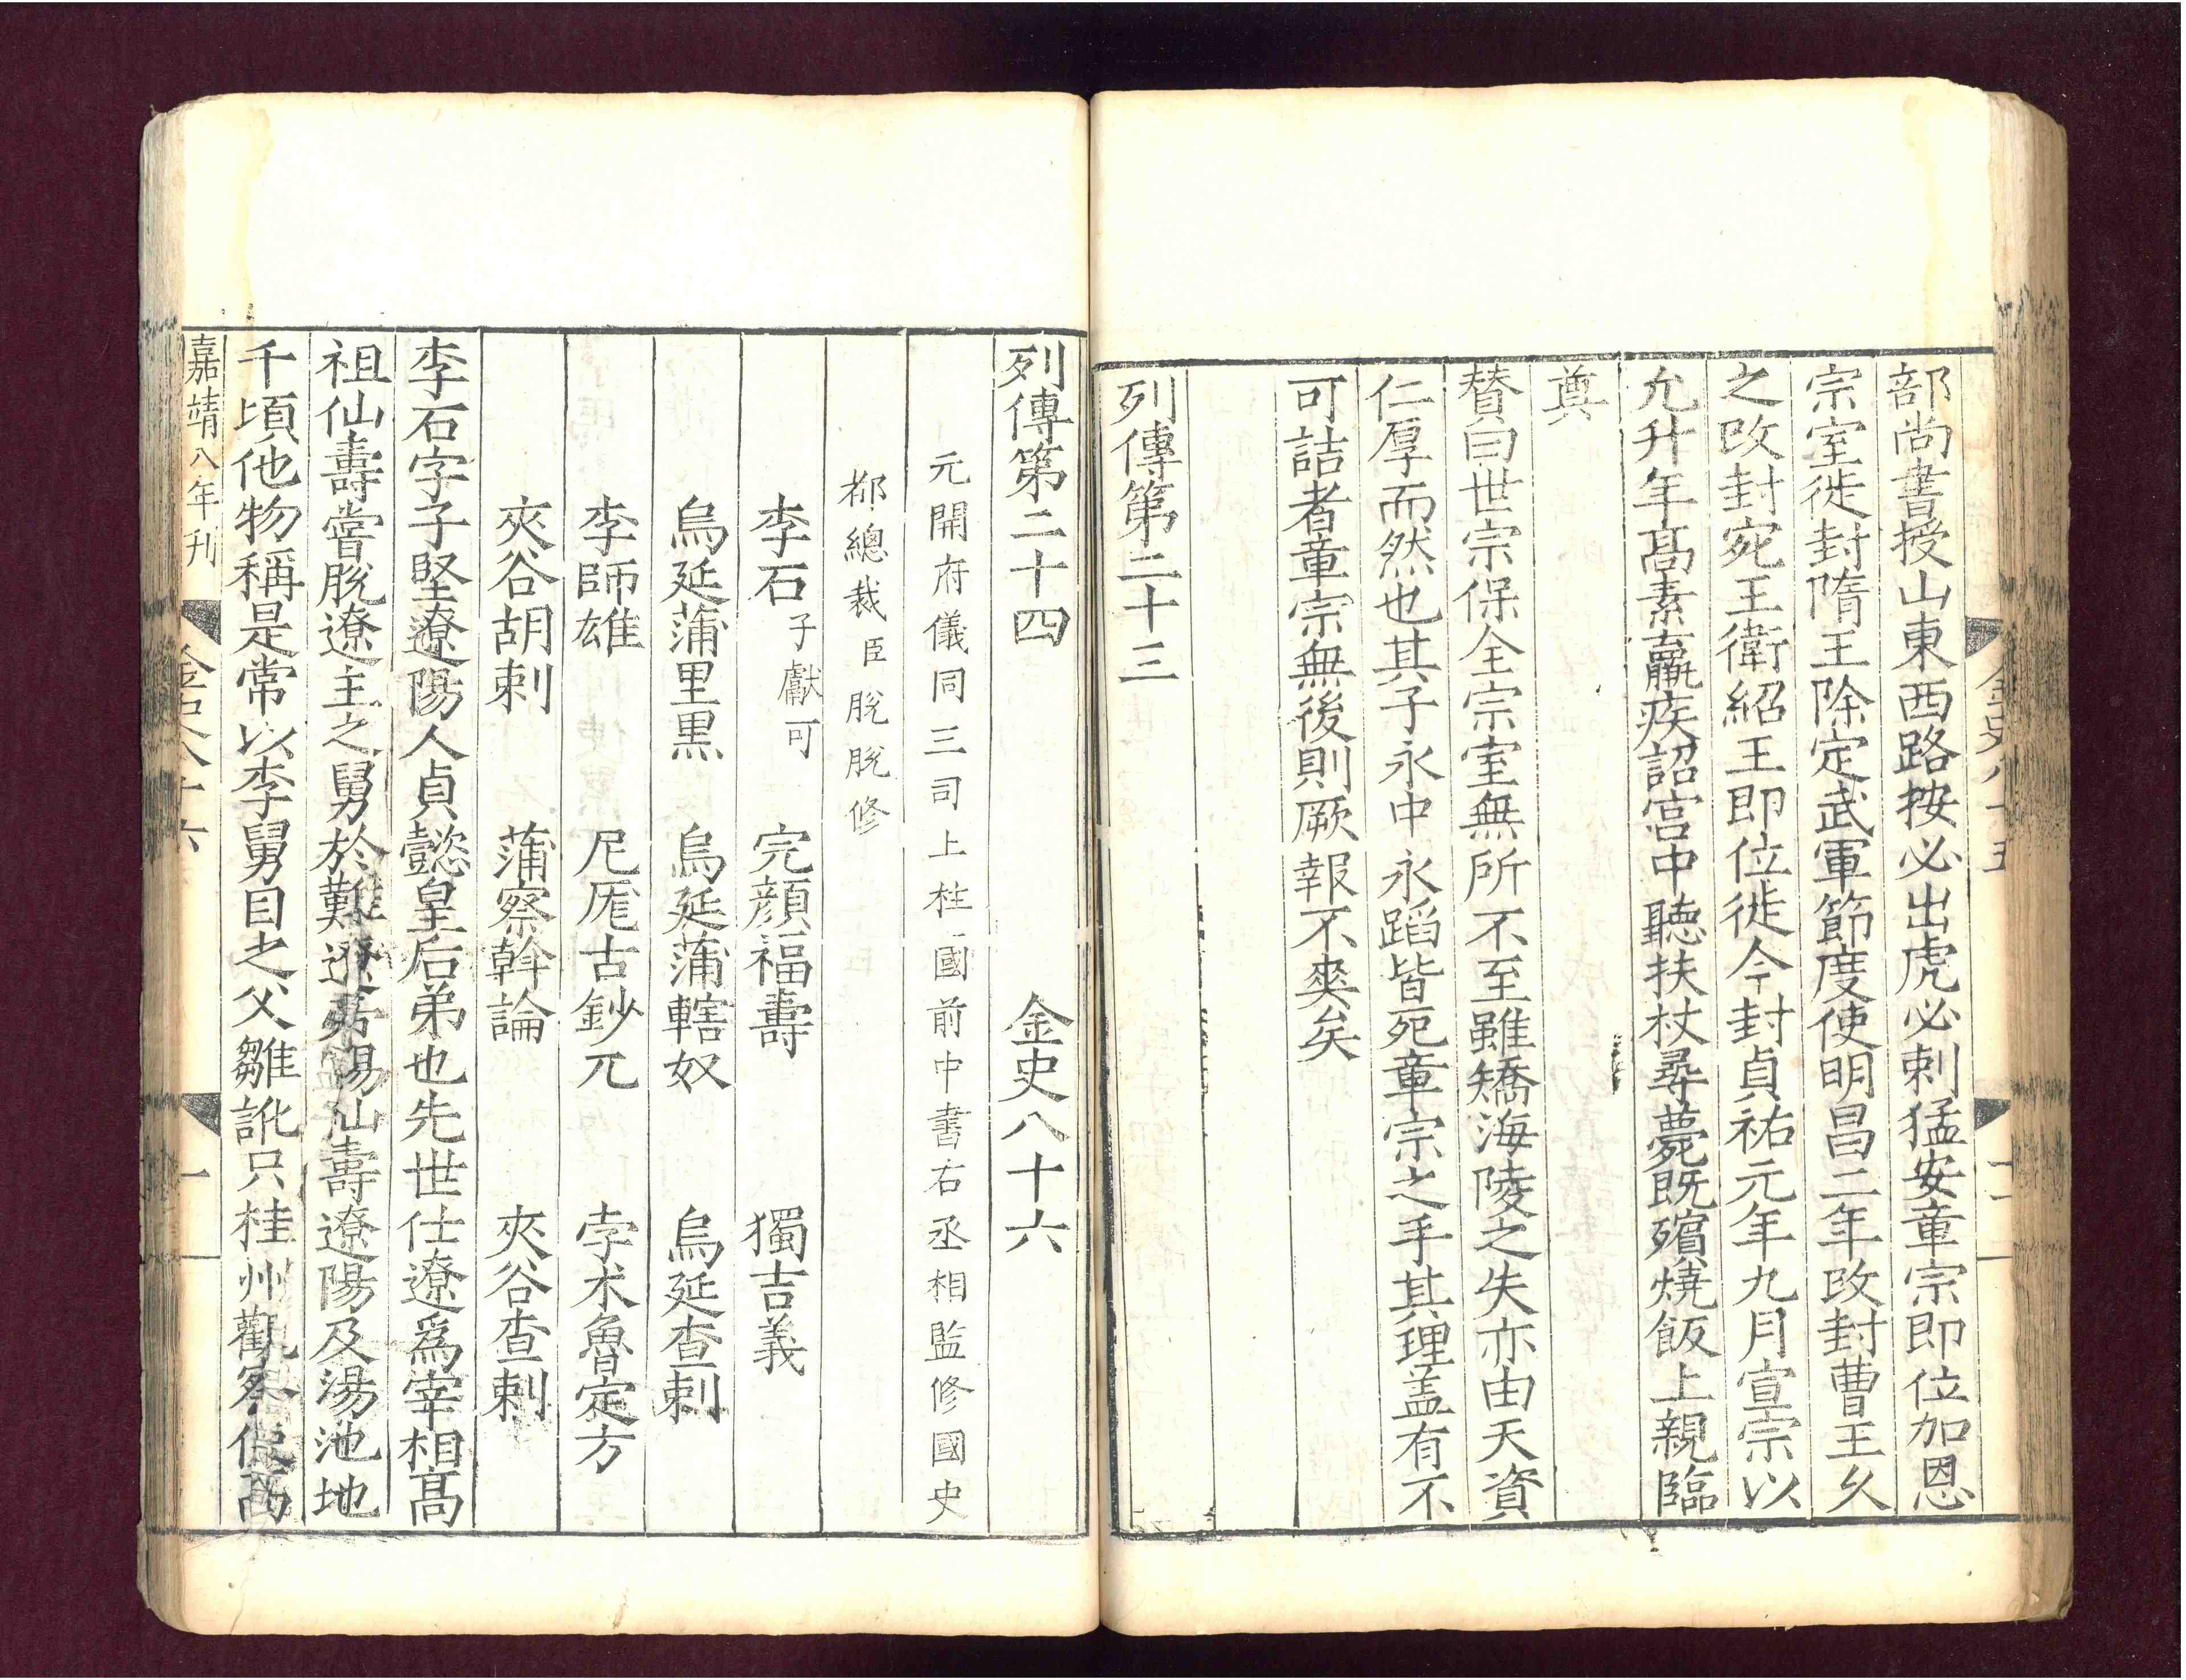 部尚書授山東西路按必出虎必剌猛安章宗即位加恩
宗室徙封隋王除定武軍節度使明昌二年改封曹王久
之改封宛王衛紹王即位徙今封貞祐元年九月宣宗以
允升年髙素羸疾詔宮中聽扶杖尋薨既殯燒飯上親臨
奠
賛曰世宗保全宗室無所不至雖矯海陵之失亦由天資
仁厚而然也其子永中永蹈皆死章宗之手其理盖有不
可詰者章宗無後則厥報不爽矣
列傳第二十三
列傳第二十四 金史八十六
元開府儀同三司上柱國前中書右丞相監修國史
都總裁臣脫脫修
李石子獻可 完顔福壽 獨吉義
烏延蒲里黒 烏延蒲轄奴 烏延查剌
李師雄 尼厖古鈔兀 孛术魯定方
夾谷胡剌 蒲察斡論 夾谷查剌
李石字子堅遼陽人貞懿皇后弟也先世仕遼爲宰相髙
祖仙壽嘗脫遼主之舅於難遼帝賜仙壽遼陽及湯池地
千頃他物稱是常以李舅目之父雛訛只桂州觀察使髙
嘉靖八年刊 金史八十六 一